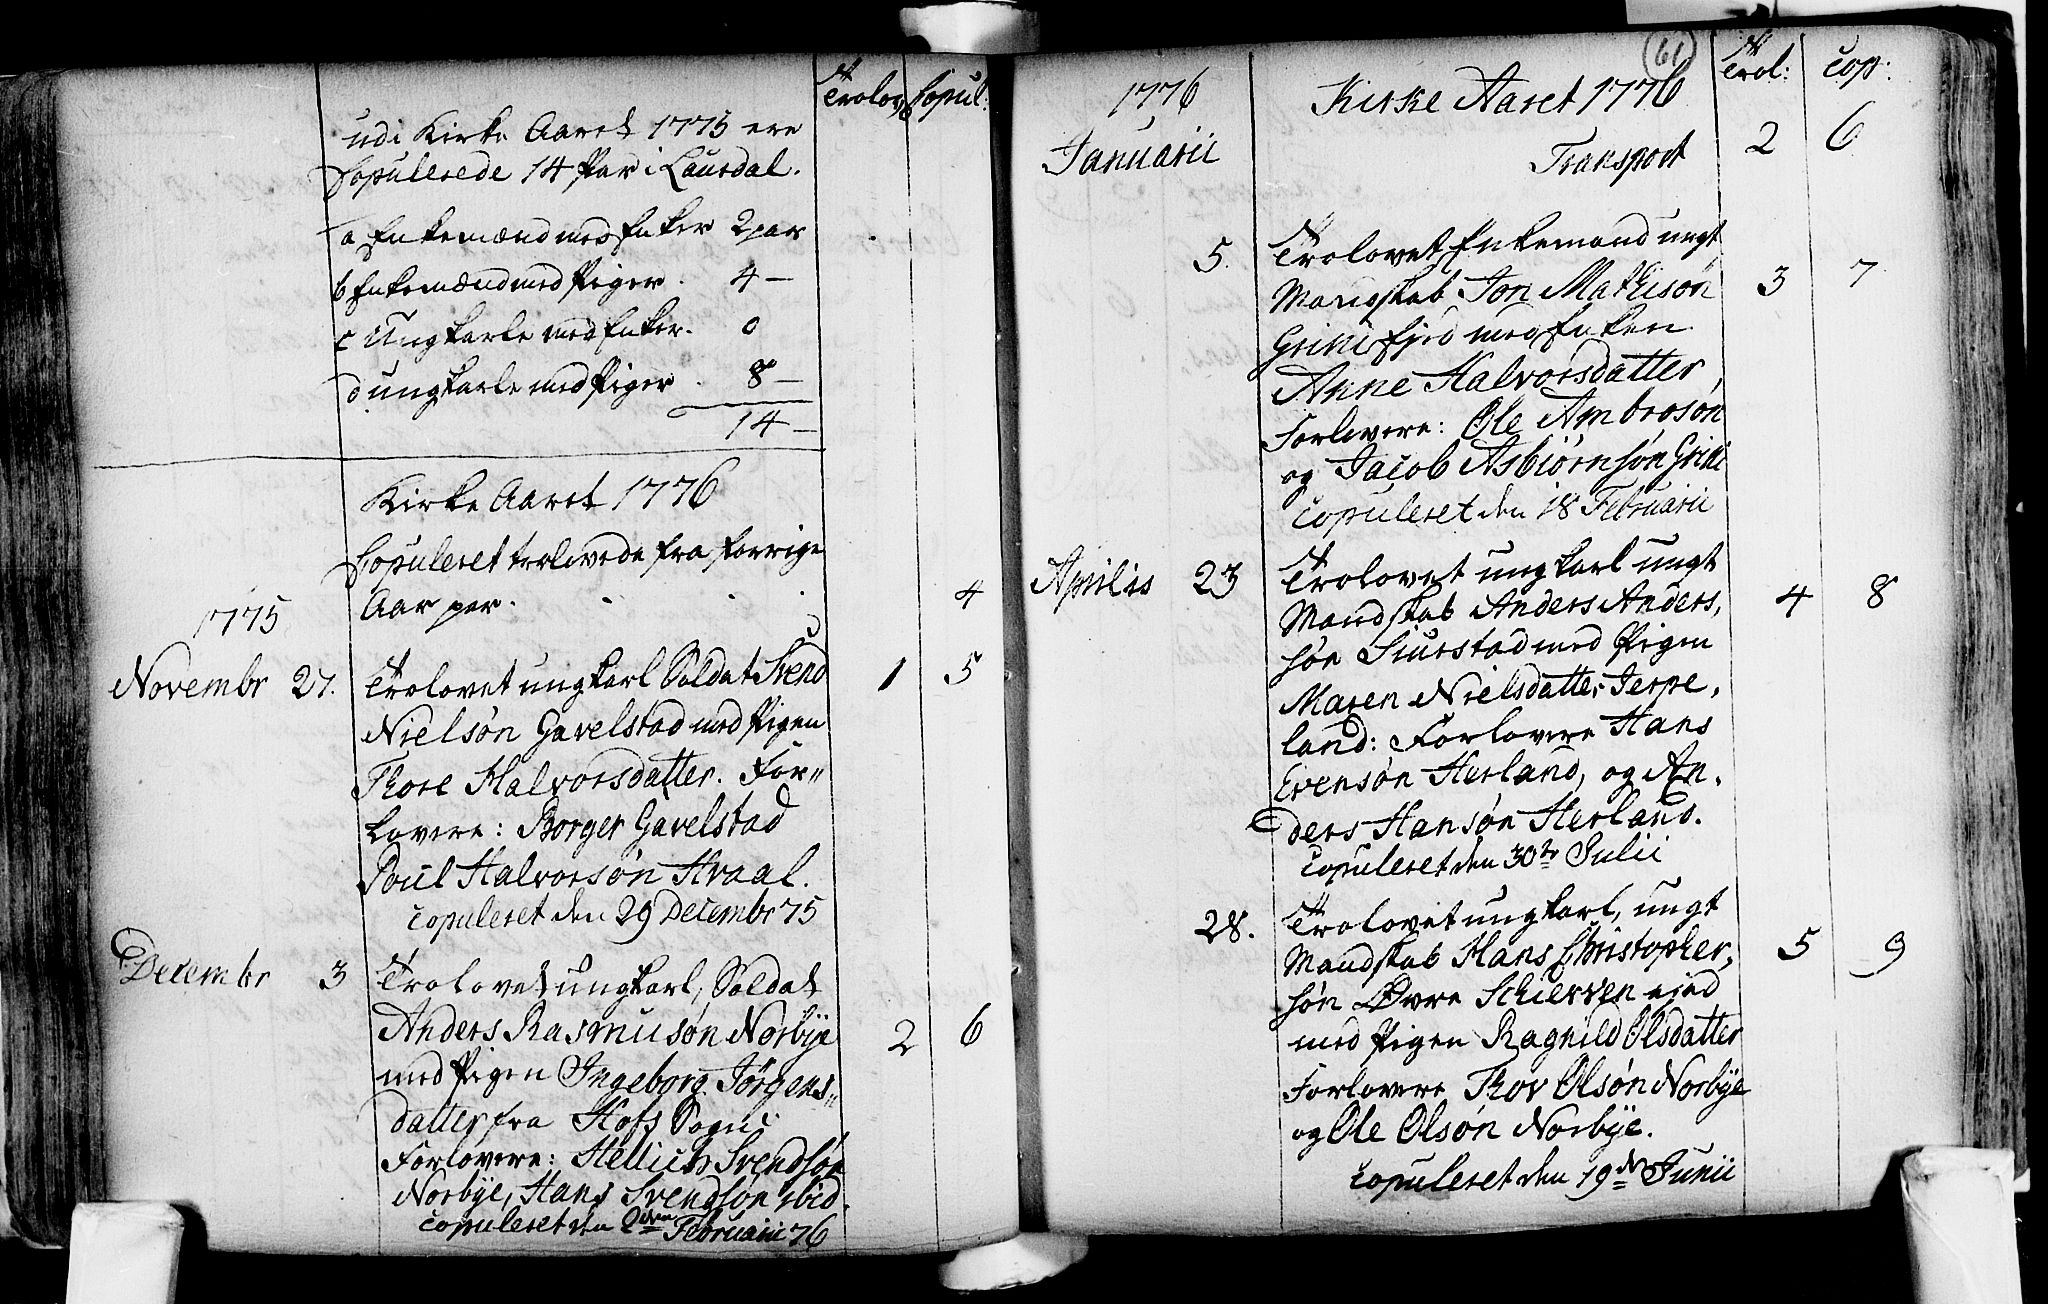 Trolov: Copul:
udi Kirke Aaret 1775 ere
Copulerede 14 Par i Laurdal.
a Enkemænd med Enker 2 par
b Enkemænd med Piger . 4 —
c Ungkarle med Enker. 0
d ungkarle med Piger . 8 —
14 —
Kirke Aaret 1776
Copuleret trolovede fra forrige
Aar par . . . . 4
1775
Novembr 27. Trolovet ungkarl Soldat Svend 1 5
Nielsøn Gavelstad med Pigen
Thore Halvorsdatter. For„
lovere: Borger Gavelstad
Poul Halvorsøn Hvaal.
copuleret den 29 Decembr 75
Decembr 3 Trolovet ungkarl, Soldat
Anders Rasmusøn Norbye 2 6
med Pigen Ingeborg Jørgens„
datter fra Hofs Sogn
Forlovere: Hellich Svendsøn
Norbye, Hans Svendsøn ibid.
copuleret den 2den Februarii 76
61
1776 Kirke Aaret 1776 Trol: Cop:
Januarii Transport 2 6
5. Trolovet Enkemand ungt
Mandskab Jon Mathisøn 3 7
Grini med Enken
Anne Halvorsdatter,
Forlovere: Ole Ambrosøn
og Jacob Asbiørnsøn Grini
copuleret den 18 Februarii
Aprilis 23 Trolovet ungkarl ungt
Mandskab Anders Anders, 4 8
søn Siurstad med Pigen
Maren Nielsdatter Jerpe,
land: Forlovere Hans
Evensøn Herland, og An,
ders Hansøn Herland.
copuleret den 30te Julii
28. Trolovet ungkarl, ungt
Mandskab Hans Christopher, 5 9
søn Øvre Schierven eied
med Pigen Ragnild Olsdatter
Forlovere Thov Olsøn Norbye
og Ole Olsøn Norbye.
copuleret den 19de Junii